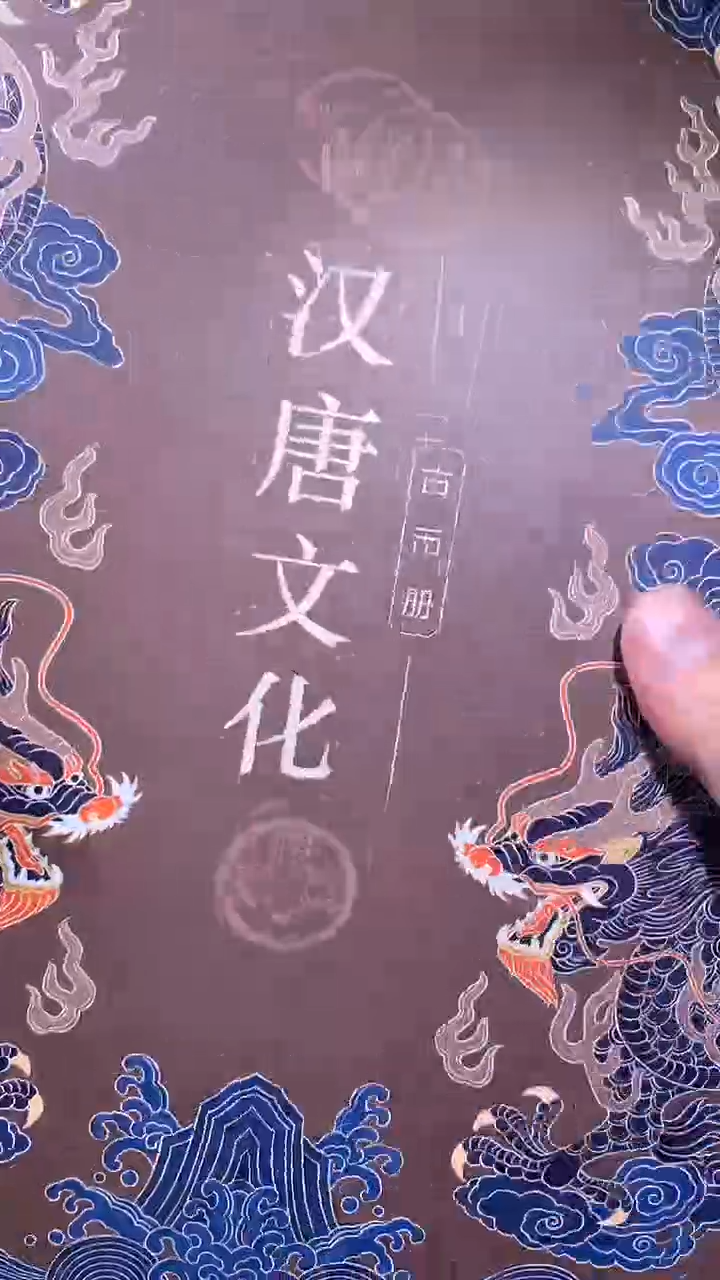 汉唐文化
古币册